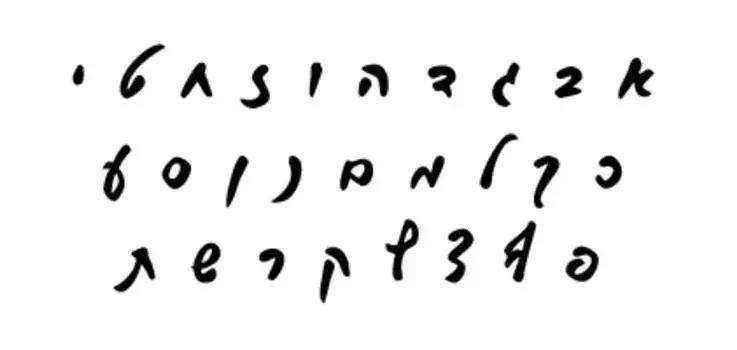 א ב ג ד ה ו ז ח ט י
כ ך ל מ ם נ ן ס ע
פ ף צ ץ ק ר ש ת